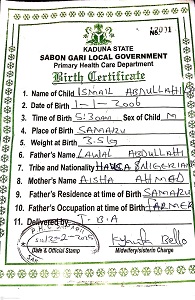 KADUNA STATE
SABON GARI LOCAL GOVERNMENT
Primary Health Care Department
Birth Certificate
1. Name of Child ISMAIL ABDULLAHI
2. Date of Birth 1-1-2006
3. Time of Birth 5:30am Sex of Child M
4. Place of Birth SAMARU
5. Weight at Birth 3.5kg
6. Father's Name LAWAL ABDULLAHI
7. Tribe and Nationality HAUSA NIGERIAN
8. Mother's Name AISHA AHMAD
9. Father's Residence at time of Birth SAMARU
10. Father's Occupation at time of Birth FARMER
11. Delivered by T.B.A
Bello
Date & Official Stamp
Midwifery/sister in Charge